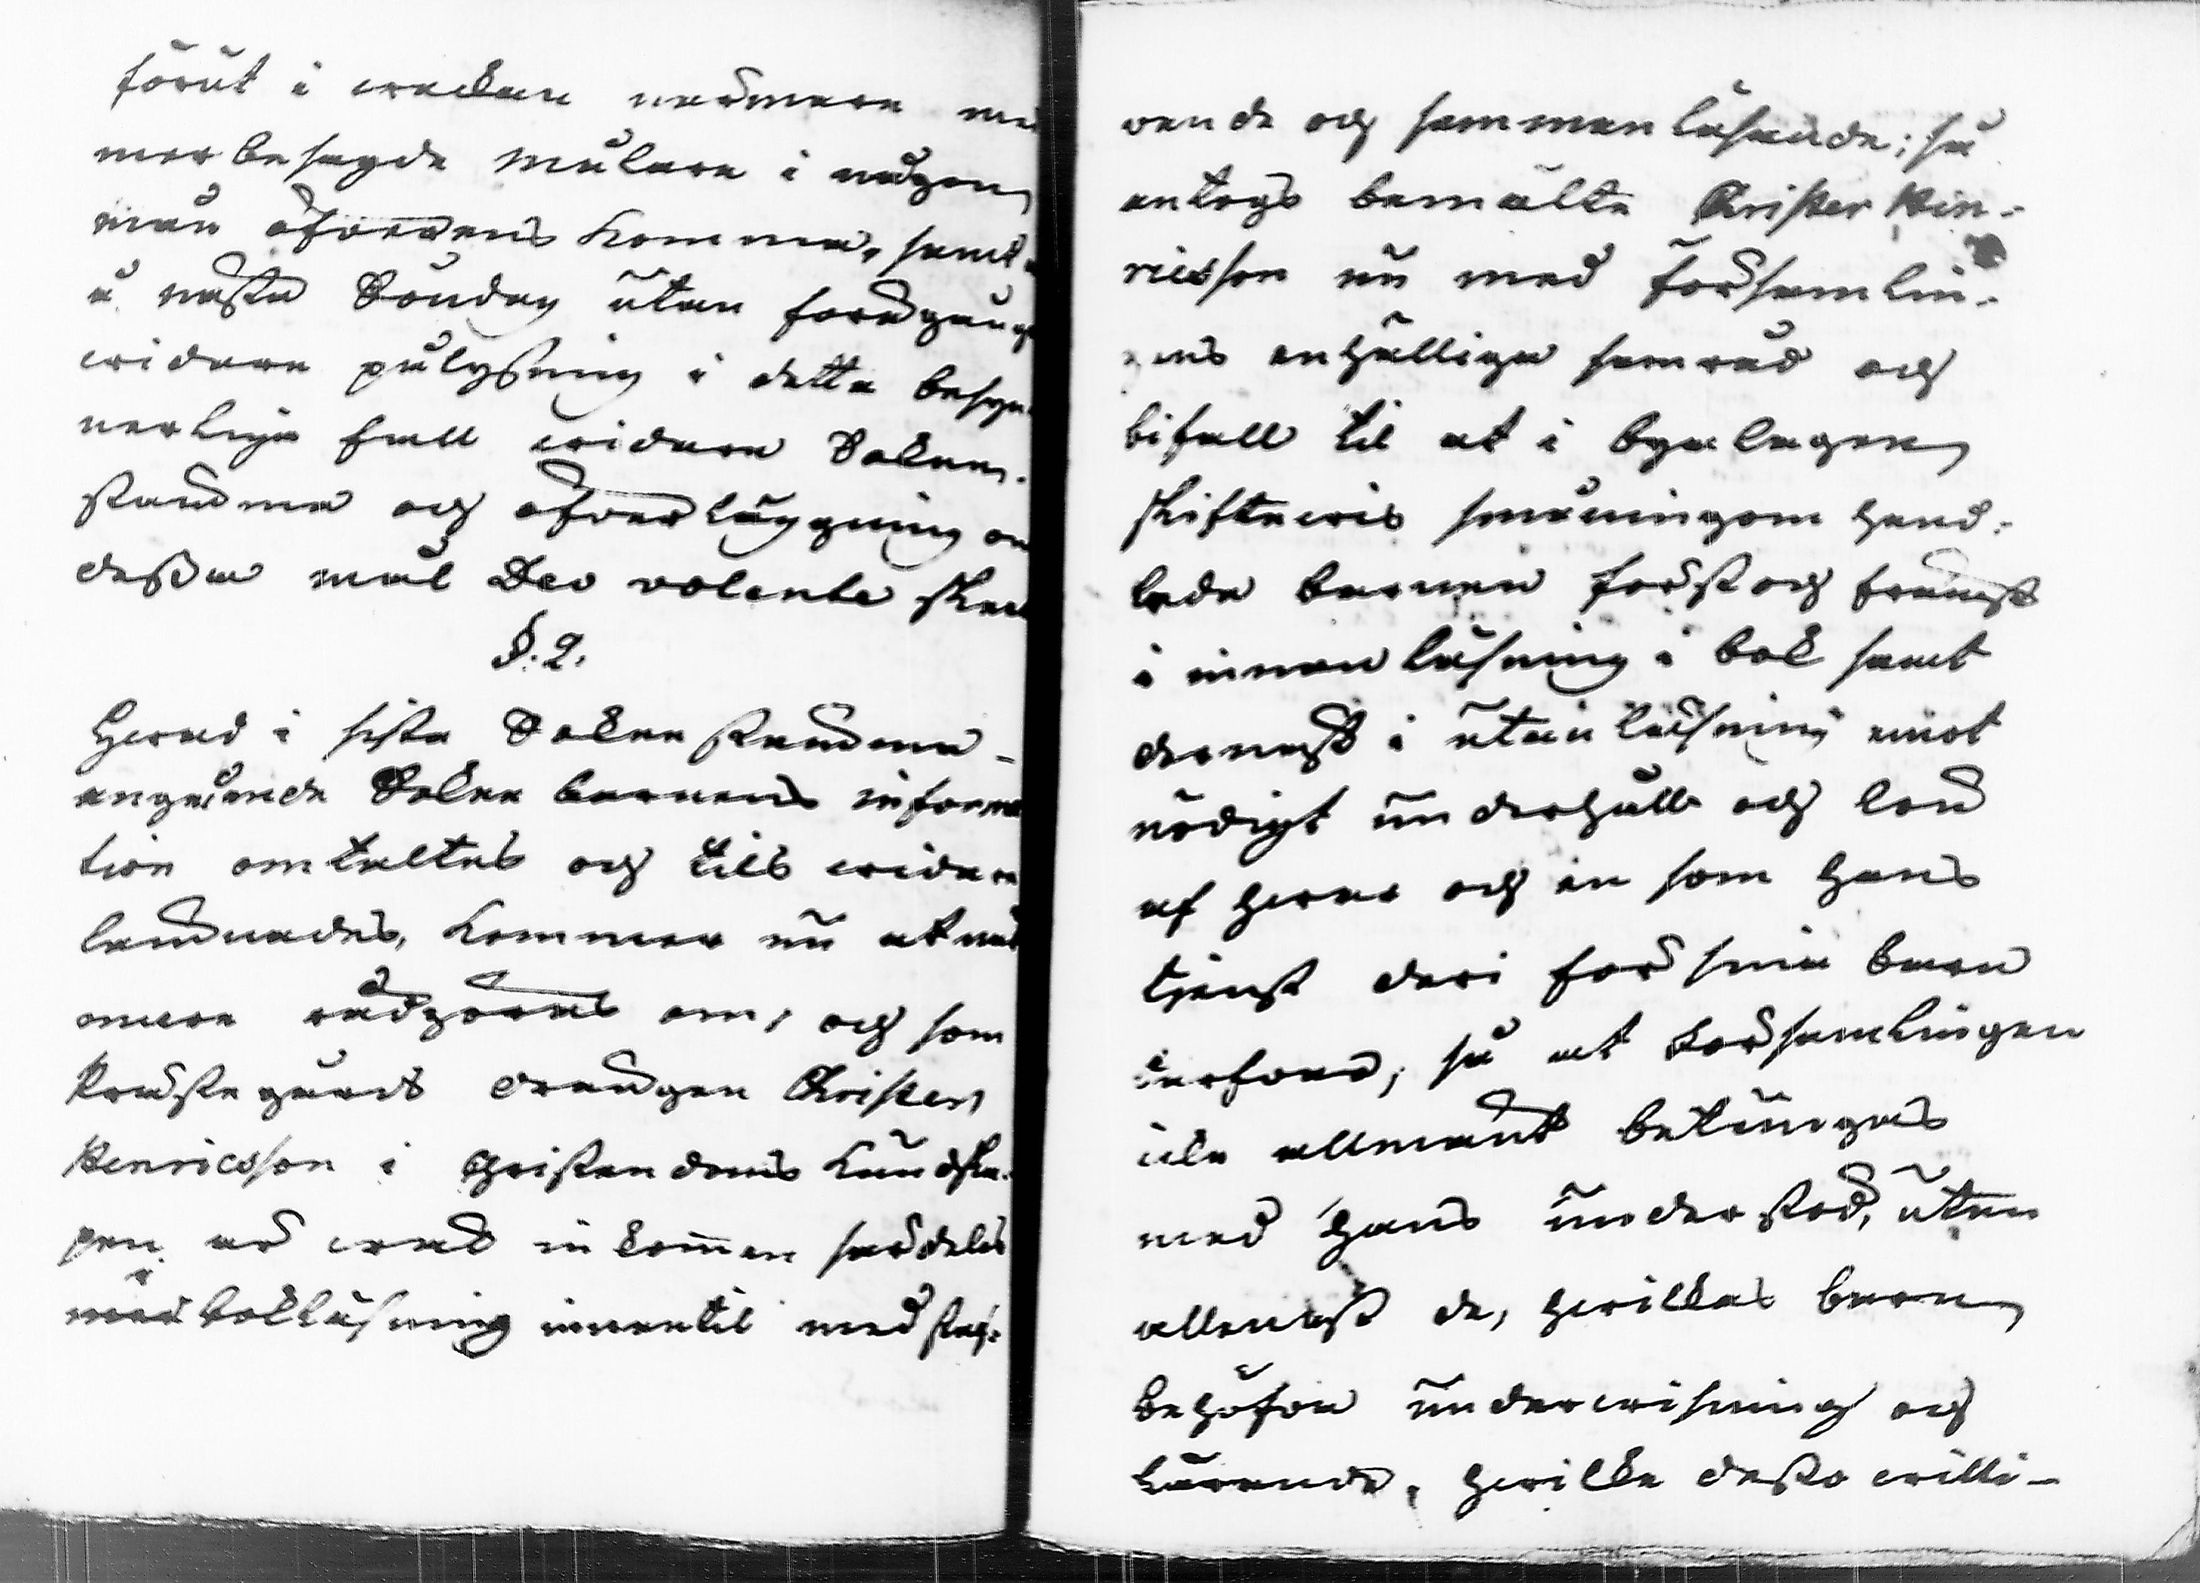 förut i weckan närmare med
merbesagde Målare i någon
mån öfwerens komma, samt
å nästa Söndag utan föregång
widare pålysning i detta besyn-
nerliga fall widare Sokne-
stämma och öfwerläggning om
dessa mål Deo volente skee
§. 2.
Hwad i sista Soknestämma
angående Sokne barnens informa
tion omtaltes och tils widare
lämnades, kommer nu at när
mare rådgöras om, och som
Prästegårds drängen Christer
Henricsson i Christendoms kundska-
pen är wäl inkommen särdeles
med bokläsning innantil med staf-
vande och samman läsande; så
antogs bemälte Christer Hin-
ricsson nu med Församlin-
gens enhälliga samråd och
bifall til at i byalagen
skiftewis småningom hand-
leda barnen först och främst
i innanläsning i bok samt
dernäst i utanläsning emot
nödigt underhåll och lön
af hwar och en som hans
tjenst deri för sina barn
erfordra, så at Församlingen
icke allmänt betungas
med hans understöd, utan
allenast de, hwilkas barn
behöfwa underwisning och
lärande, hwilka desto willi-